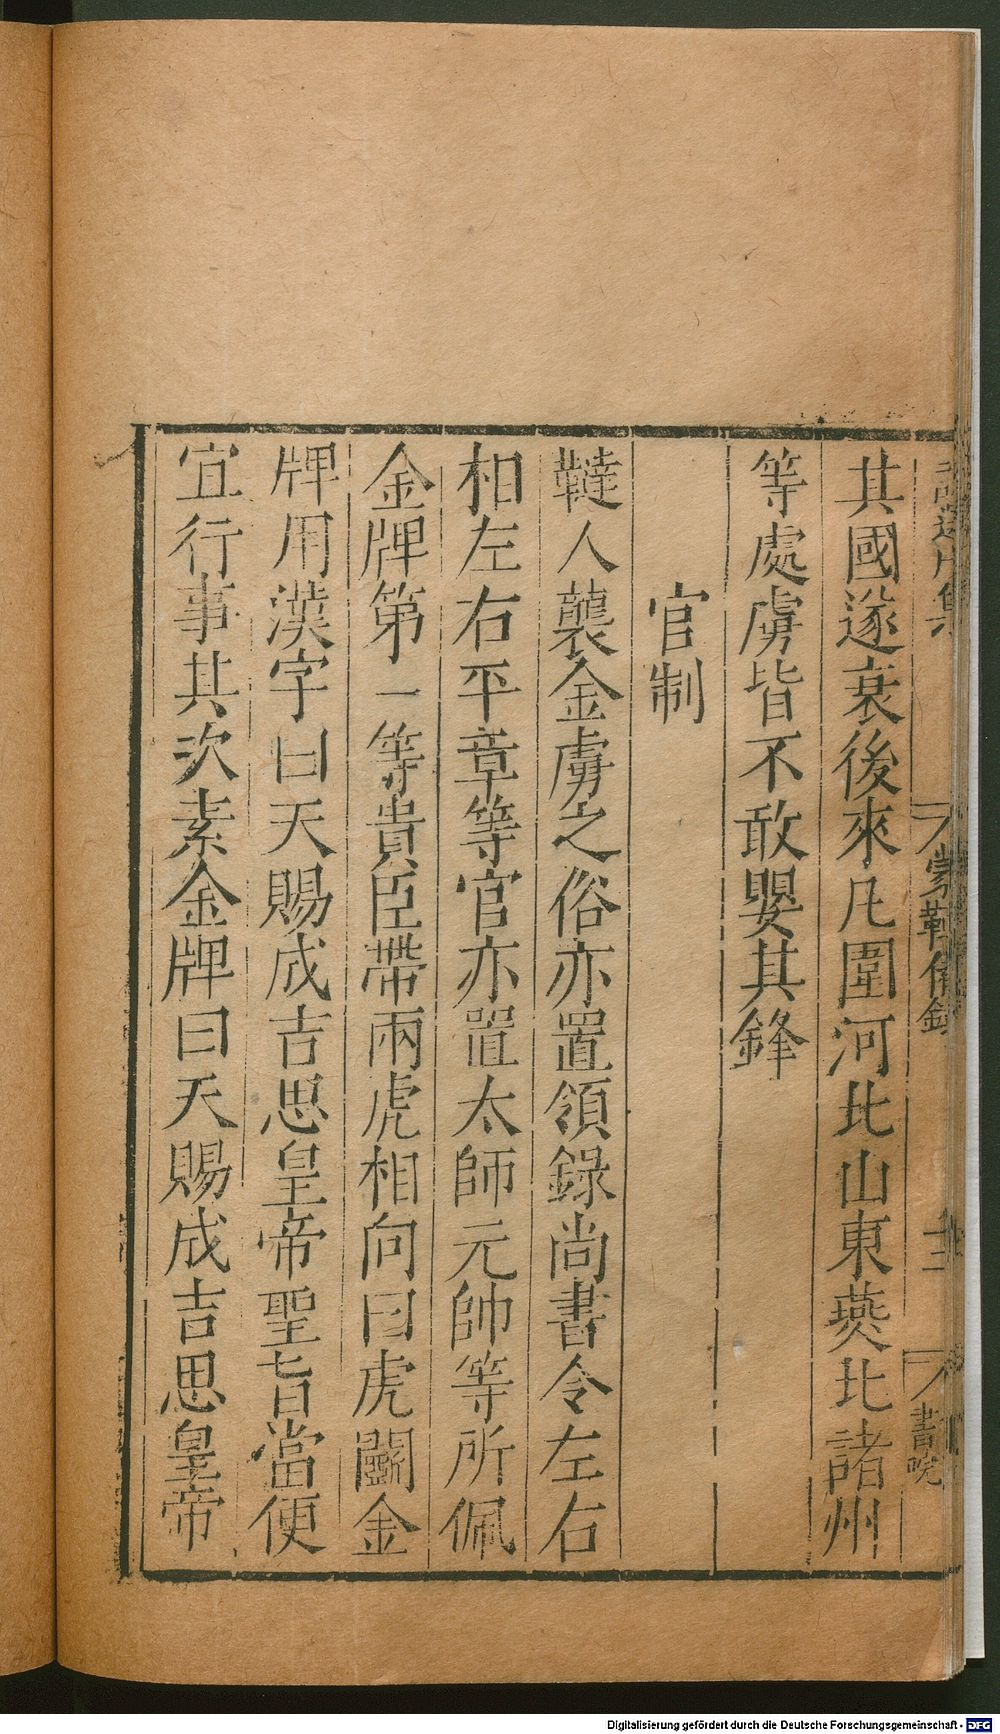 其國遂衰後來凡圍河北山東燕北諸州
等處虜皆不敢嬰其鋒
官制
韃人襲金虜之俗亦置領錄尚書令左右
相左右平章等官亦置太師元帥等所佩
金牌第一等貴臣帶兩虎相向曰虎鬭金
牌用漢字曰天賜成吉思皇帝聖旨當便
宜行事其次素金牌曰天賜成吉思皇帝
蒙韃備錄
書院
Digitalisierung gefördert durch die Deutsche Forschungsgemeinschaft - DFG